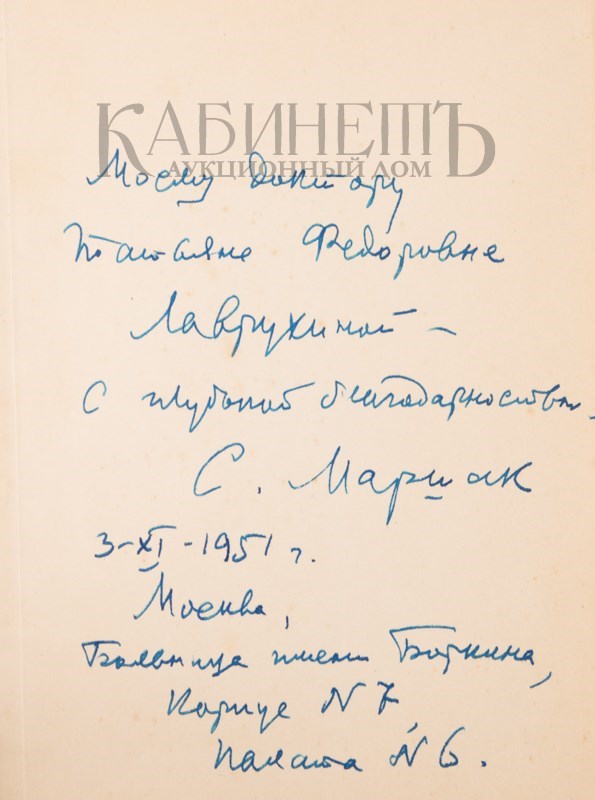 КАБИНЕТЪ
АУКЦИОННЫЙ ДОМ
Моему доктору
Татьяне Федоровне
Лаврухиной –
с глубокой благодарностью.
С. Маршак
3-XI-1951 г.
Москва,
Больница имени Боткина,
Корпус N 7,
палата N 6.